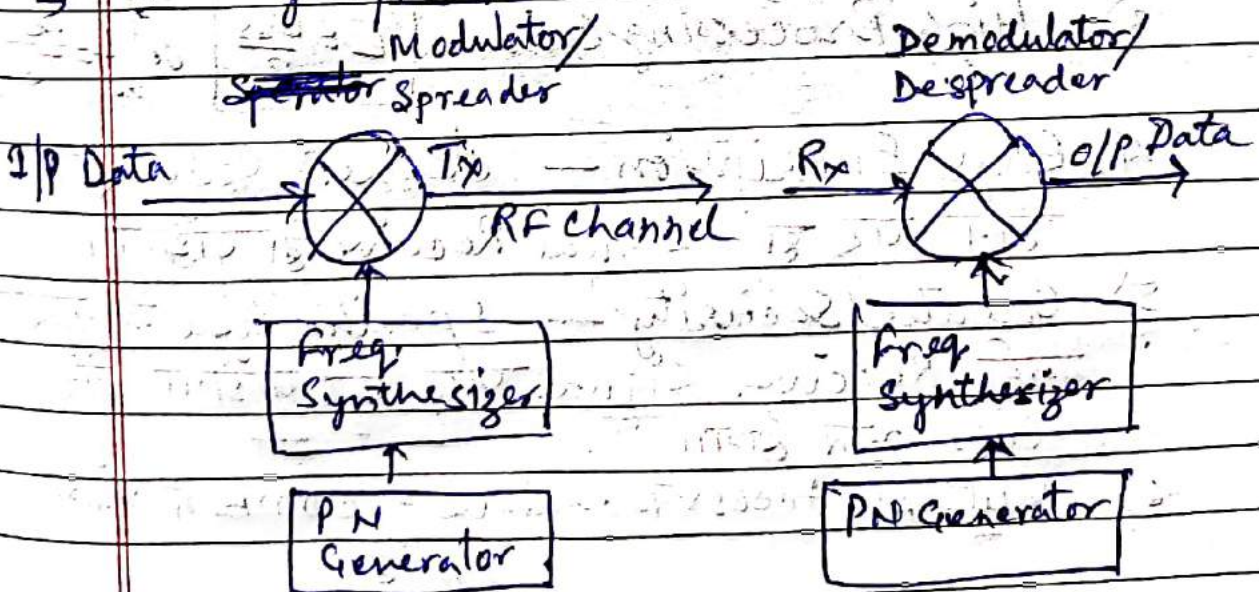 Modulator/
Spreader
Demodulator/
Despreader
I/P Data
Tx
RF Channel
Rx
O/P Data
Freq.
Synthesizer
Freq
Synthesizer
PN
Generator
PN Generator